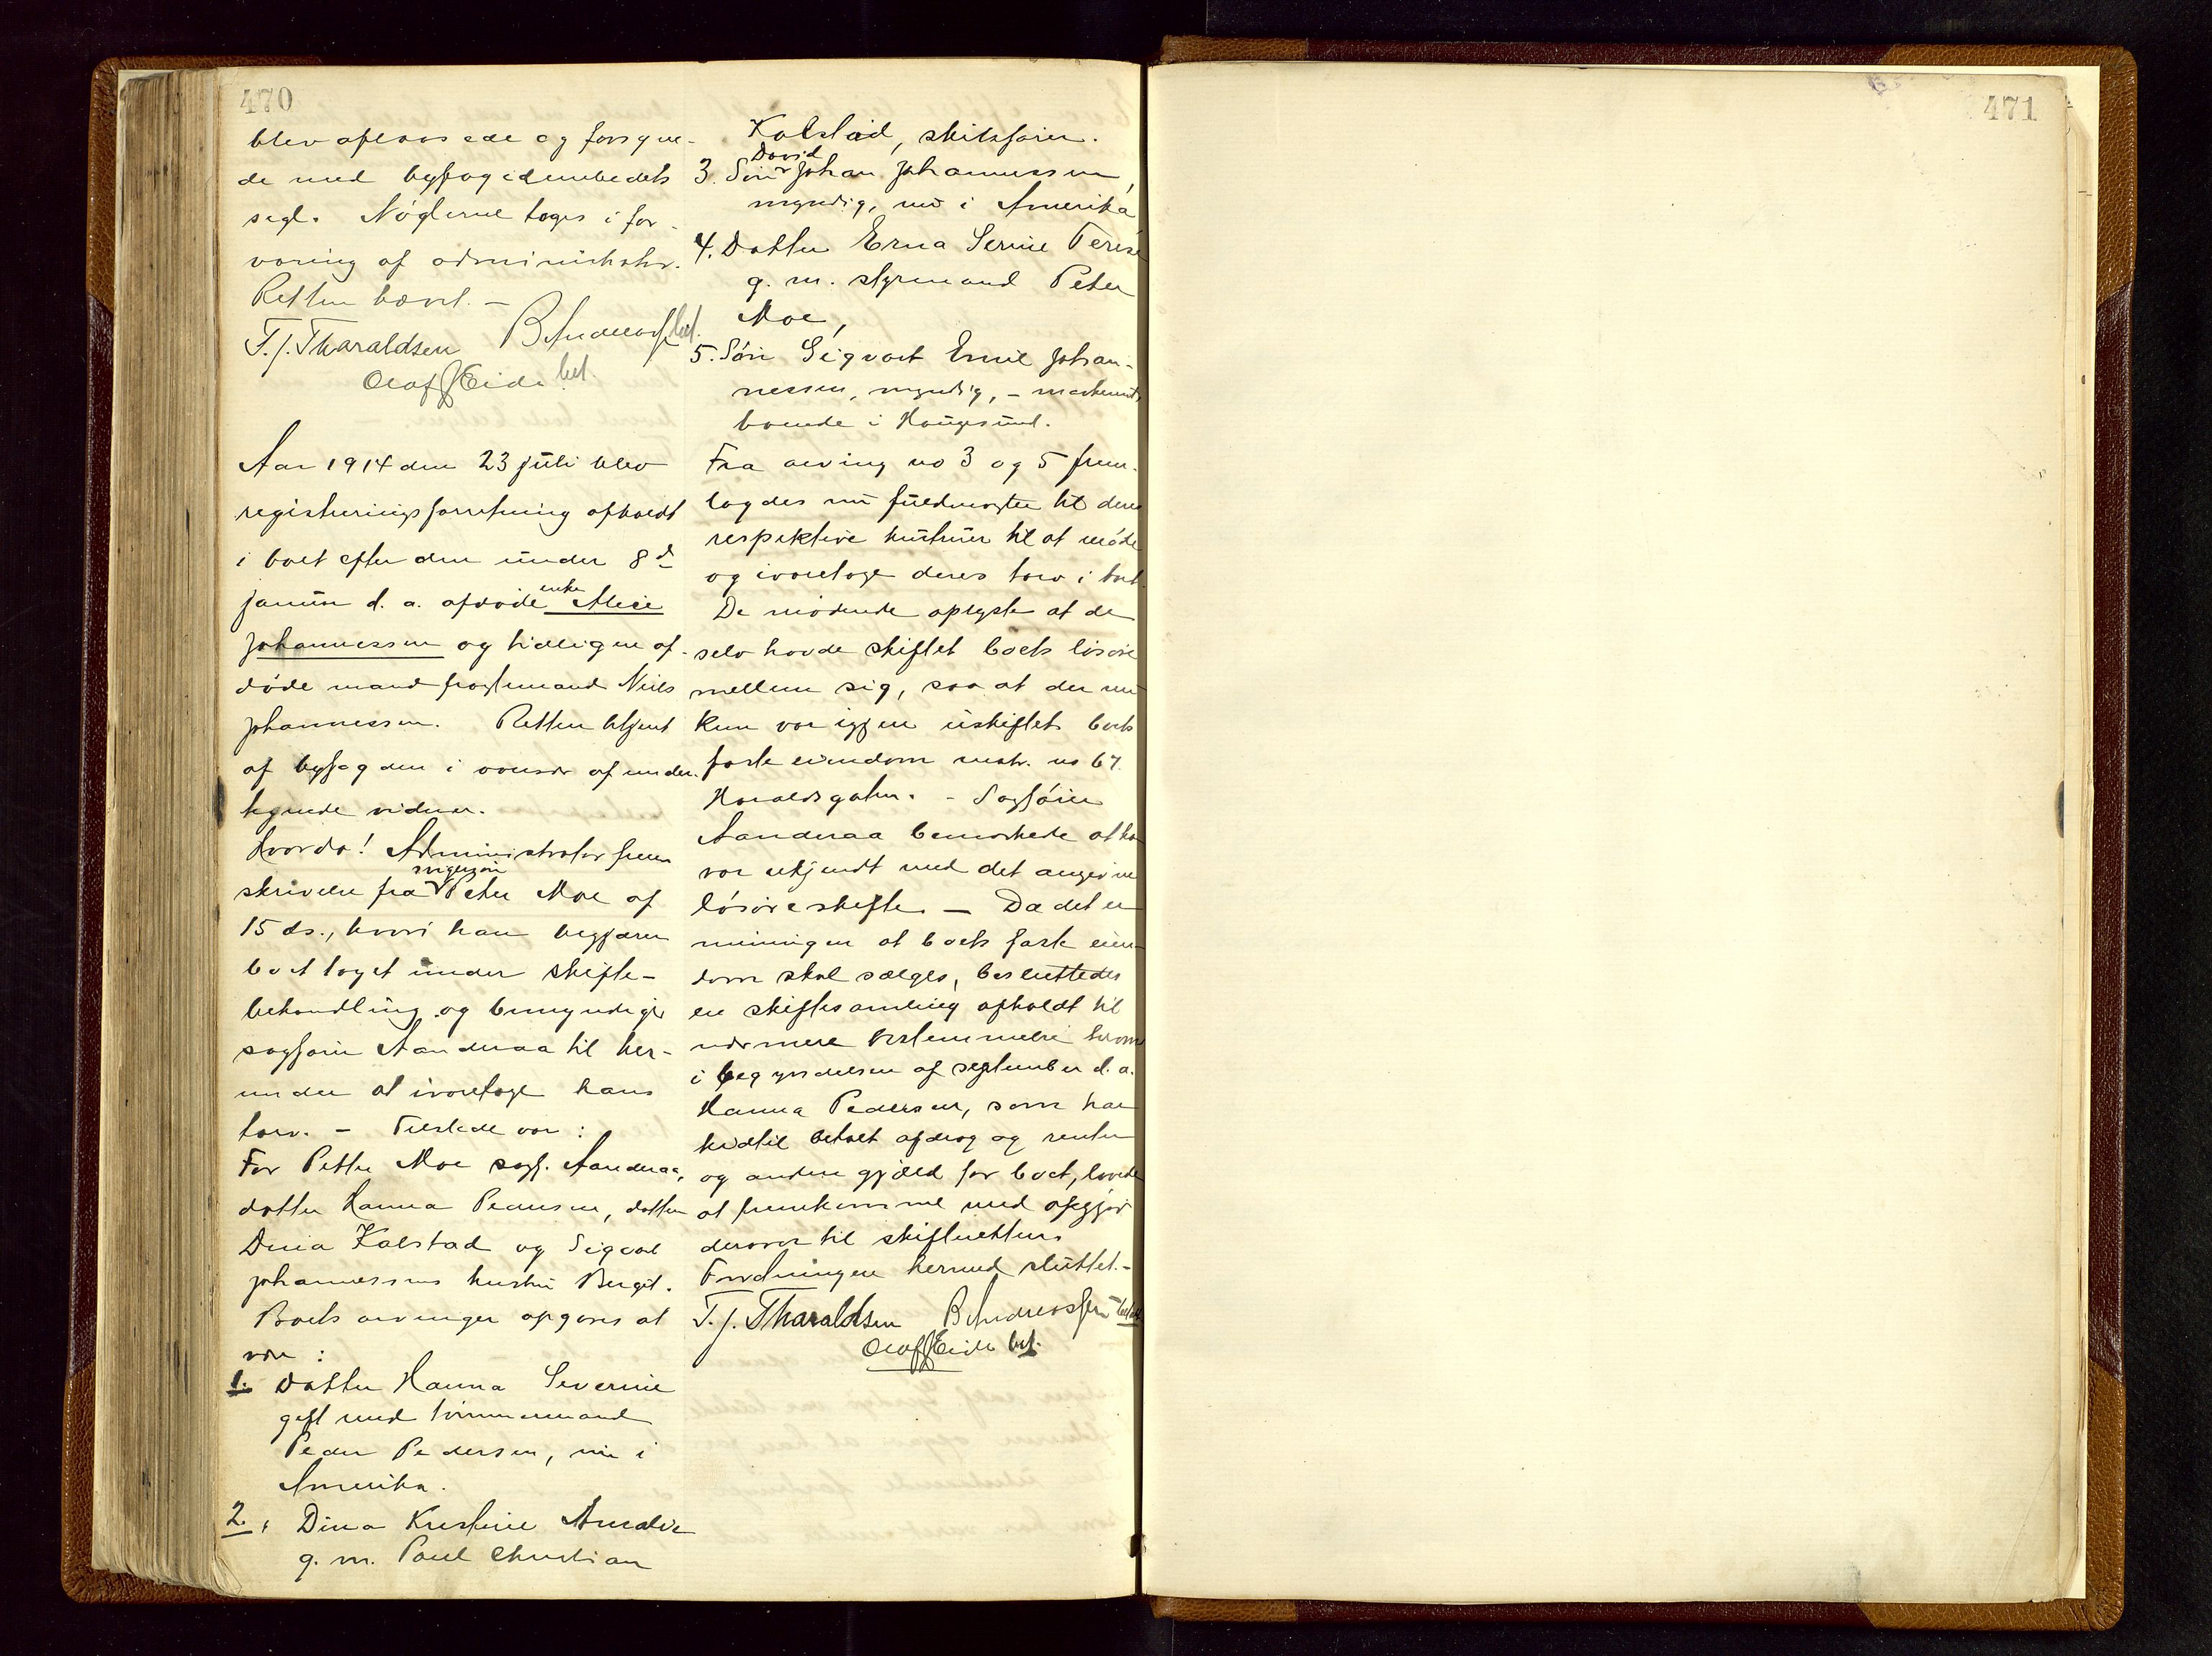 470
blev aflaasede og forsyne-
de med byfogedembedets
segl. Nøglerne toges i for-
varing af administrator.
Retten hævet. –
T. J. Tharaldsen B Andreassen bet.
Olaf Eide bet.
Aar 1914 den 23 juli blev
registreringsforretning afholdt
i boet efter den under 8de
januar d. a. afdøde enke Alice
Johannessen og tidligere af-
døde mand fragtemand Niels
Johannessen. Retten betjent
af byfogden i overvær af under-
tegnede vidner.
Hvorda! Administrator frem
skrivelse fra svigersøn Peter Moe af
15 ds., hvori han begjærer
boet taget under skifte-
behandling og bemyndiger
sagfører Aanderaa til her-
under at ivaretage hans
tarv. – Tilstede var:
For Petter Moe sagf. Aanderaa,
datter Hanna Pedersen, datter
Dina Kalstad og Sigval
Johannessens hustru Bergit.
Boets arvinger opgaves at
være:
1. Datter Hanna Severine
gift med tømmermand
Peder Pedersen, nu i
Amerika.
2. Dina Kristine Amalie
g. m. Poul Christian
Kalstad, skibsfører.
3. Søn David Johan Johannessen,
myndig, nu i Amerika
4. Datter Erna Serine Terese
g. m. styrmand Peter
Moe,
5. Søn Sigvart Emil Johan-
nessen, myndig, –
boende i Haugesund.
Fra arving no 3 og 5 frem-
lagdes nu fuldmagter til deres
respektive hustruer til at møde
og ivaretage deres tarv i boet.
De mødende oplyste at de
selv havde skiftet boets løsøre
mellem sig, saa at der nu
kun var igjen uskiftet boets
faste eiendom matr. no 67
Haraldsgaten. – Sagfører
Aanderaa bemerkede at han
var ukjendt med det angivne
løsøreskifte. – Da det er
meningen at boets faste eien-
dom skal sælges, besluttedes
en skiftesamling afholdt til
nærmere bestemmelse herom
i begyndelsen af september d. a.
Hanna Pedersen, som har
hidtil betalt afdrag og renter
og anden gjæld for boet, lovede
at fremkomme med opgjør
derover til skifteretten.
Forretningen hermed sluttet. –
T. J. Tharaldsen B Andreassen bet.
Olaf Eide bet.
471